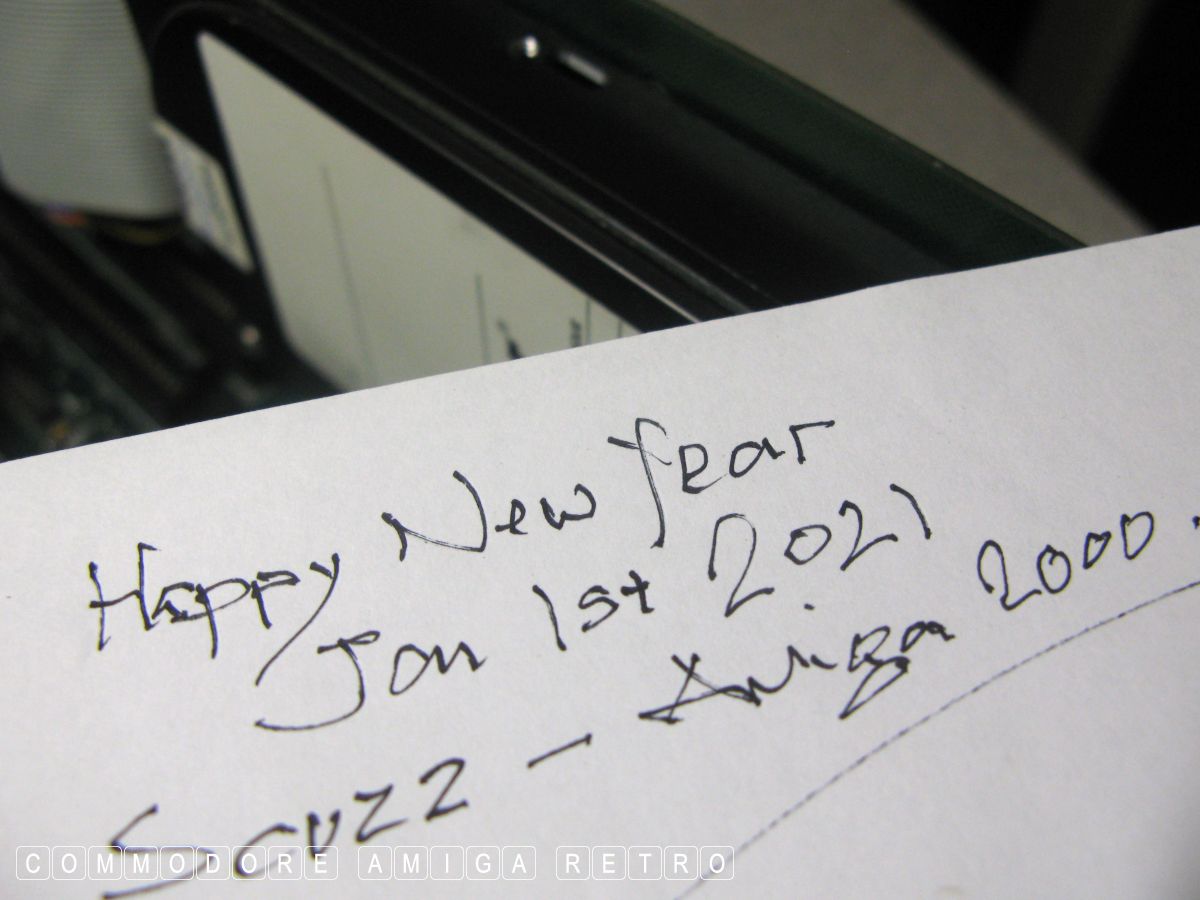 Happy New Year
Jan 1st 2021
Scuzz - Amiga 2000.
COMMODORE AMIGA RETRO